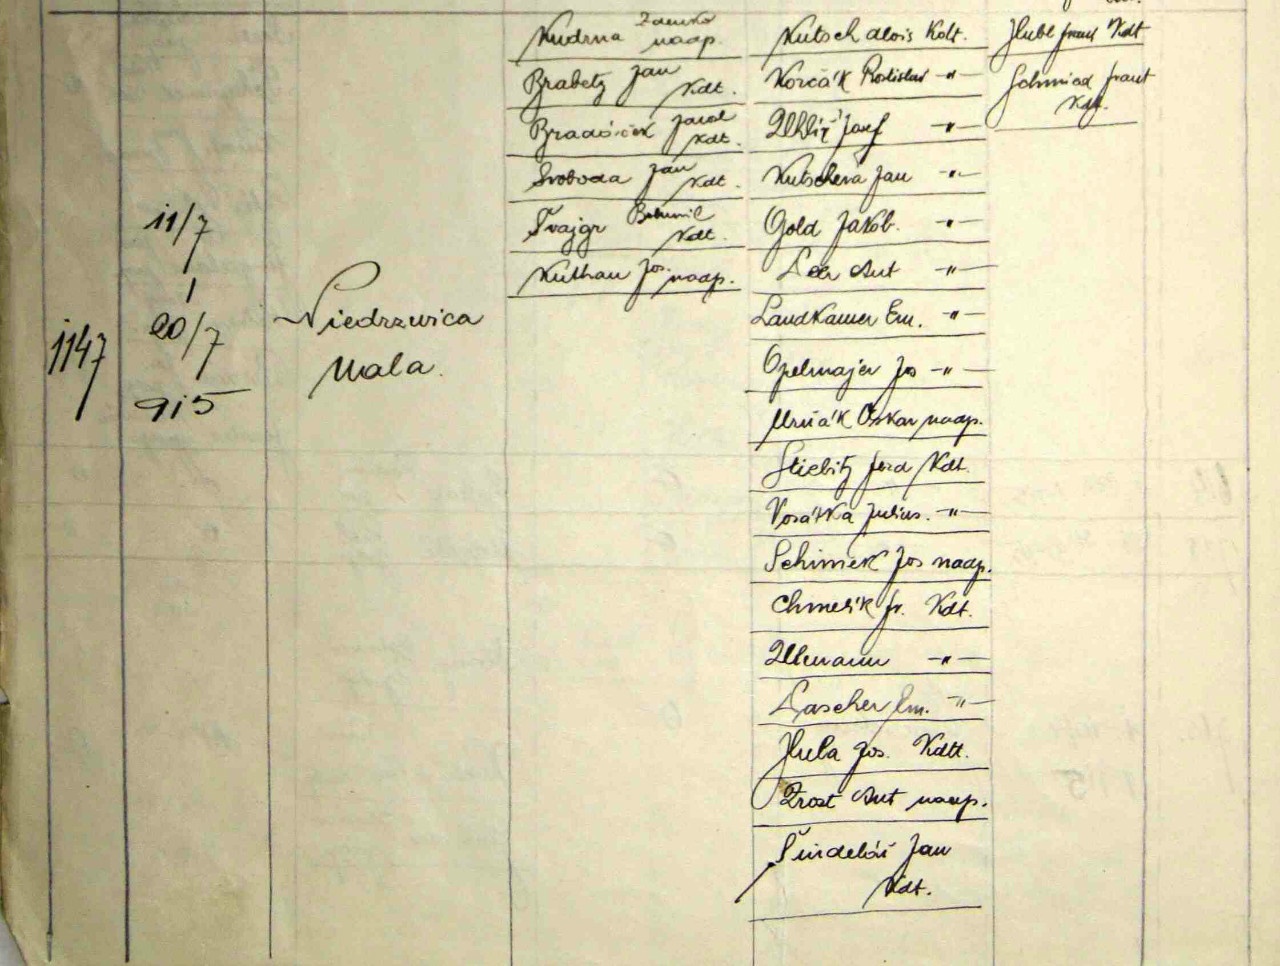 1147
11/7
20/7
915
Niedrzwica
Mala.
Kudrna Zdenko
naap.
Brabetz Jan
Kdt.
Bradáček
Kdt.
Svoboda Jan
Kdt.
Švajgr Bohumil
Kdt.
Kuthan Jos.
naap.
Kutsch Alois Kdt.
Korčák Rostislav -"-
Uhlíř Josef -"-
Kutschera Jan -"-
Gold Jakob. -"-
Leer Ant -"-
Landkamer Em. -"-
Opelmajer Jos -"-
Mrňák Oskar naap.
Stiebitz Ferd Kdt.
Vosátka Julius. -"-
Schimek Jos naap.
Chmelík Fr. Kdt.
Ullmann -"-
Lascher Em. -"-
Hula Jos. Kdtt.
Zrost Ant naap.
Šindelář Jan
Kdt.
Hubl Frant Kdt
Schmied Frant
Kdt.